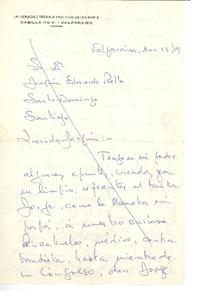 UNIVERSIDAD TECNICA FEDERICO SANTA MARIA
CASILLA 110 V. - VALPARAISO
Valparaíso, Nov. 13/59
Sr. Dn.
Joaquín Edwards Bello
Santo Domingo
Santiago
Querido Joaquín:
Tengo en mi poder
algunos apuntes, sacados, ya
en limpio, referentes al tío
Jorge, como lo llamaba mi
papá, a nuestro curioso
bisabuelo, médico, contra
bandista, hasta miembro de
un Congreso, don Jorge